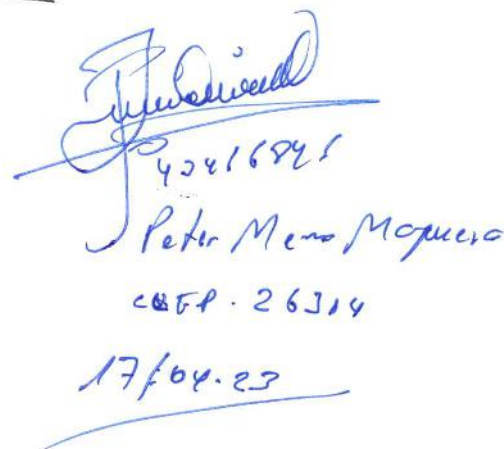 42456841
Peter Mena Maquera
CMEP. 26314
17/04.23